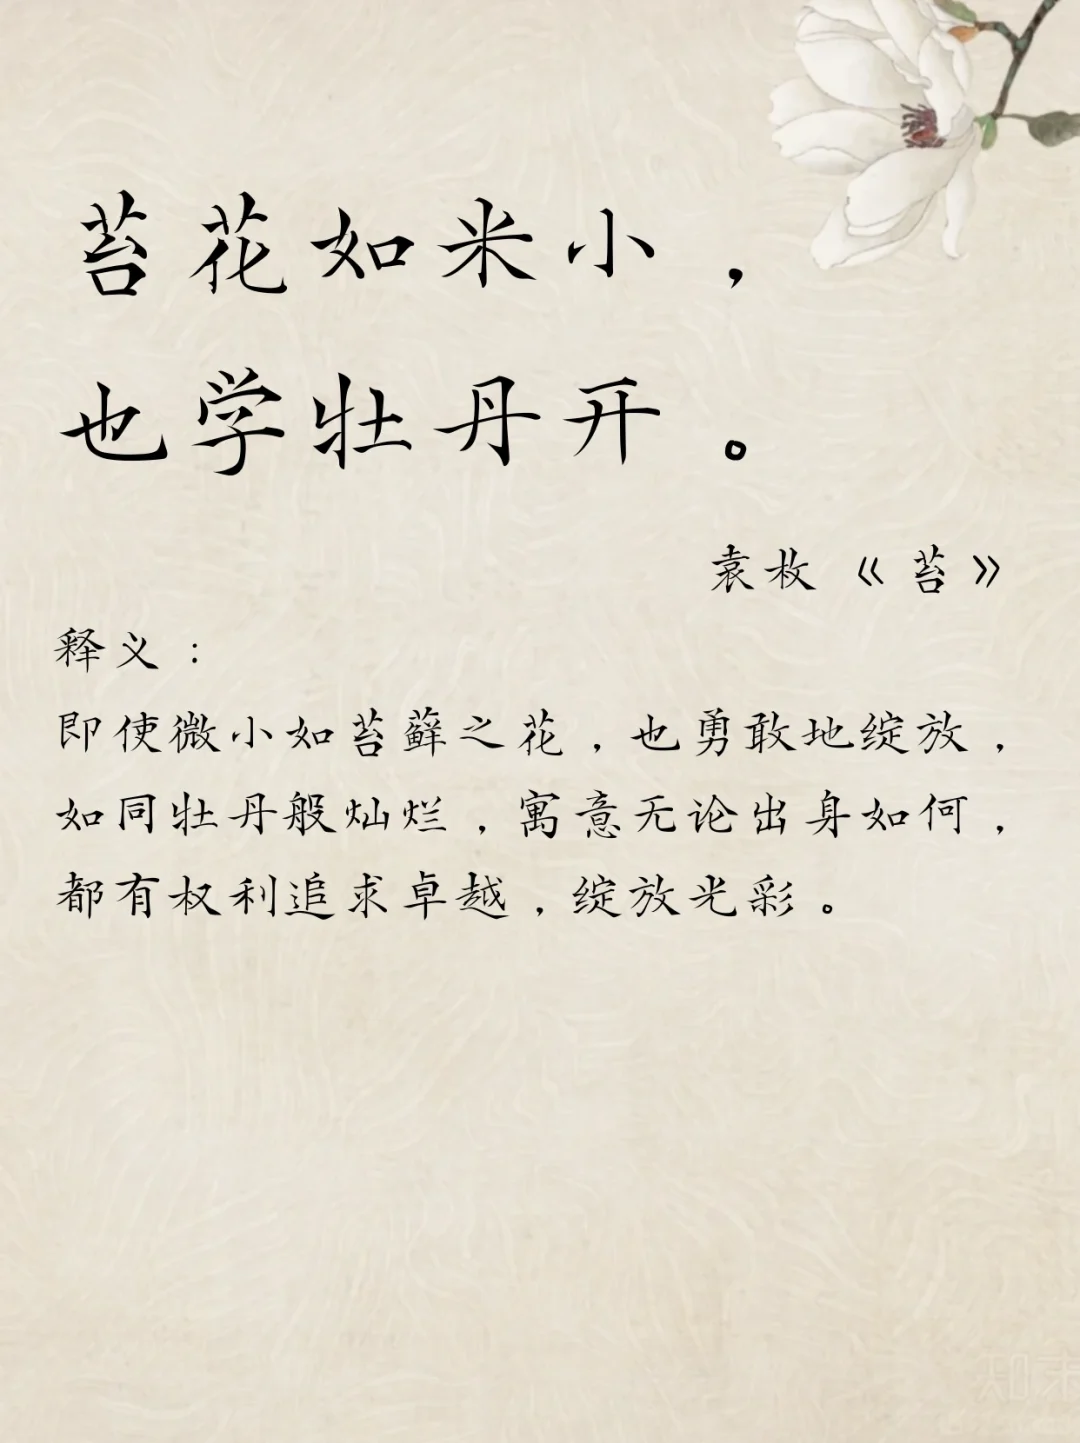 苔花如米小，
也学牡丹开。
袁枚《苔》
释义：
即使微小如苔藓之花，也勇敢地绽放，
如同牡丹般灿烂，寓意无论出身如何，
都有权利追求卓越，绽放光彩。